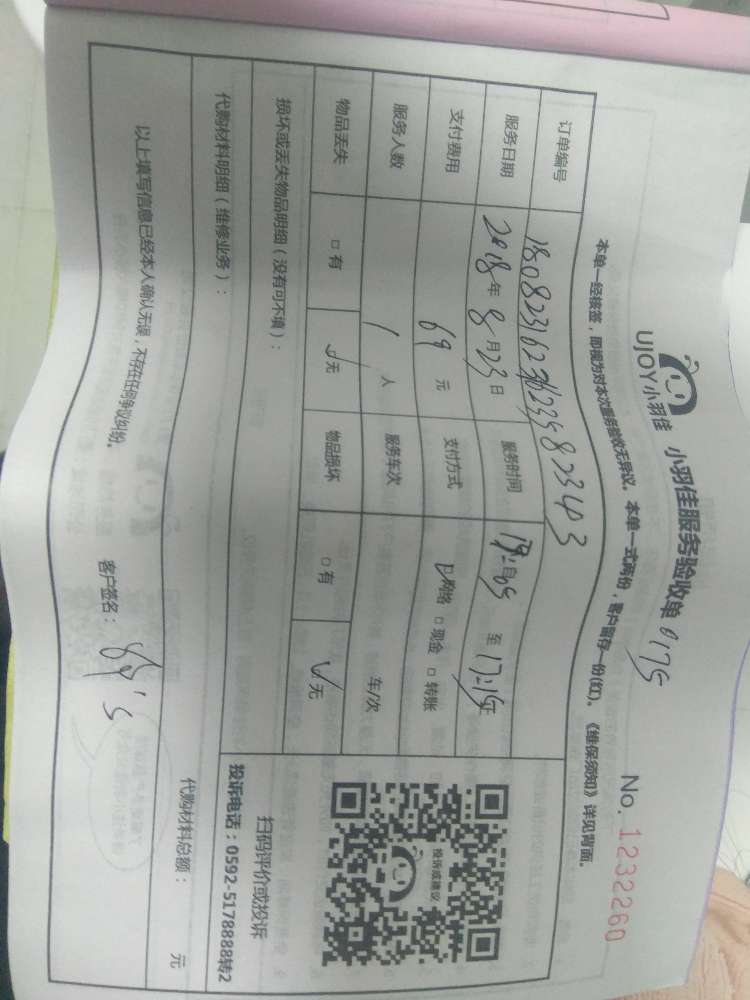 UJOY小羽佳 小羽佳服务验收单 0175
No. 1232260
本单一经核签，即视为对本次服务验收无异议。本单一式两份，客户留存一份(红)。《维保须知》详见背面。
订单编号
服务日期 2018年8月23日 服务时间 自 至 17:15
支付费用 69元 支付方式 网络 □现金 □转账
服务人数 1人 服务车次 车/次
物品丢失 □有 √无 物品损坏 □有 √无
损坏或丢失物品明细（没有可不填）：
投诉或建议
扫码评价或投诉
投诉电话：0592-5178888转2
代购材料明细（维修业务）：
代购材料总额： 元
以上填写信息已经本人确认无误，不存在任何争议纠纷。
客户签名：